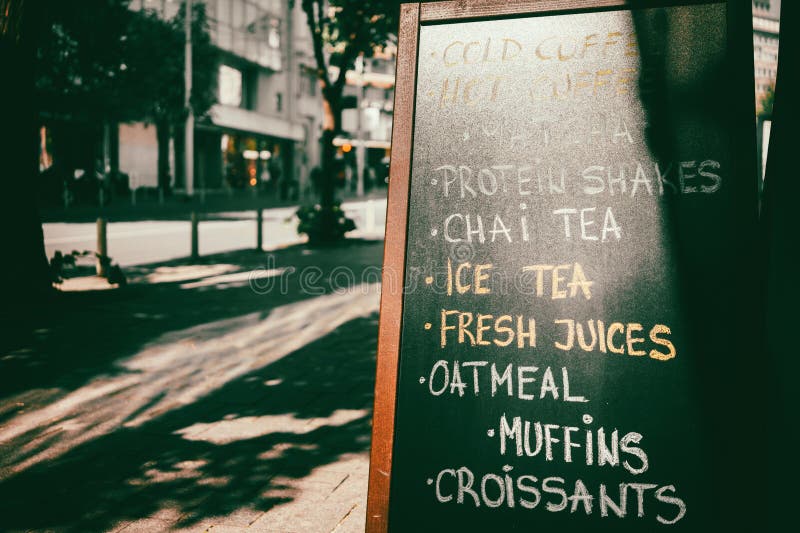 · COLD COFFEE
· HOT COFFEE
MATCHA
· PROTEIN SHAKES
· CHAi TEA
· ICE TEA
· FRESH JUICES
· OATMEAL
· MUFFiNS
· CROiSSANTS
dreamstime